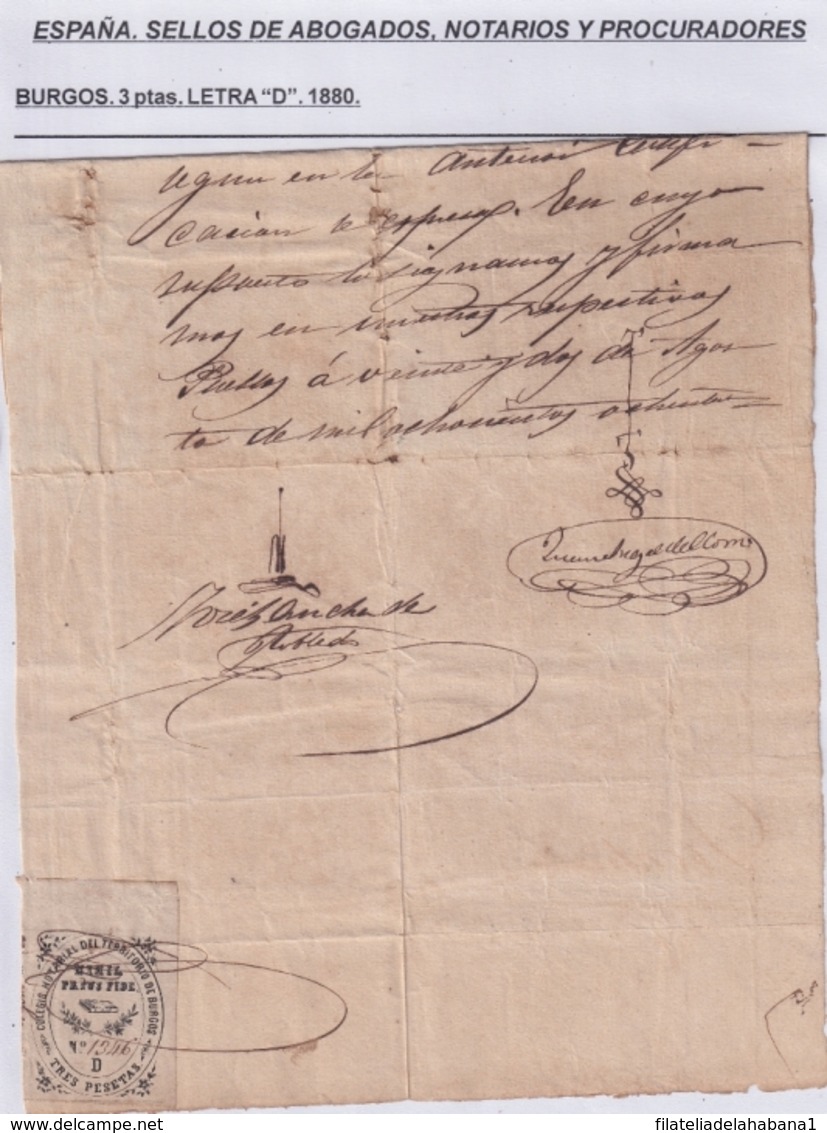 ESPAÑA. SELLOS DE ABOGADOS, NOTARIOS Y PROCURADORES
BURGOS. 3 ptas. LETRA "D". 1880.
en la anterior certifi-
cacion se espresa. En cuyo
lo signamos y firma-
mos en nuestros respectivos
Pueblos á veinte y dos de Agos-
to de mil ochocientos ochenta
José Sanchez de
Robledo
COLEGIO NOTARIAL DEL TERRITORIO DE BURGOS
NIHIL
PRIUS FIDE
Nº 1346
D
TRES PESETAS
filateliadelahabana1